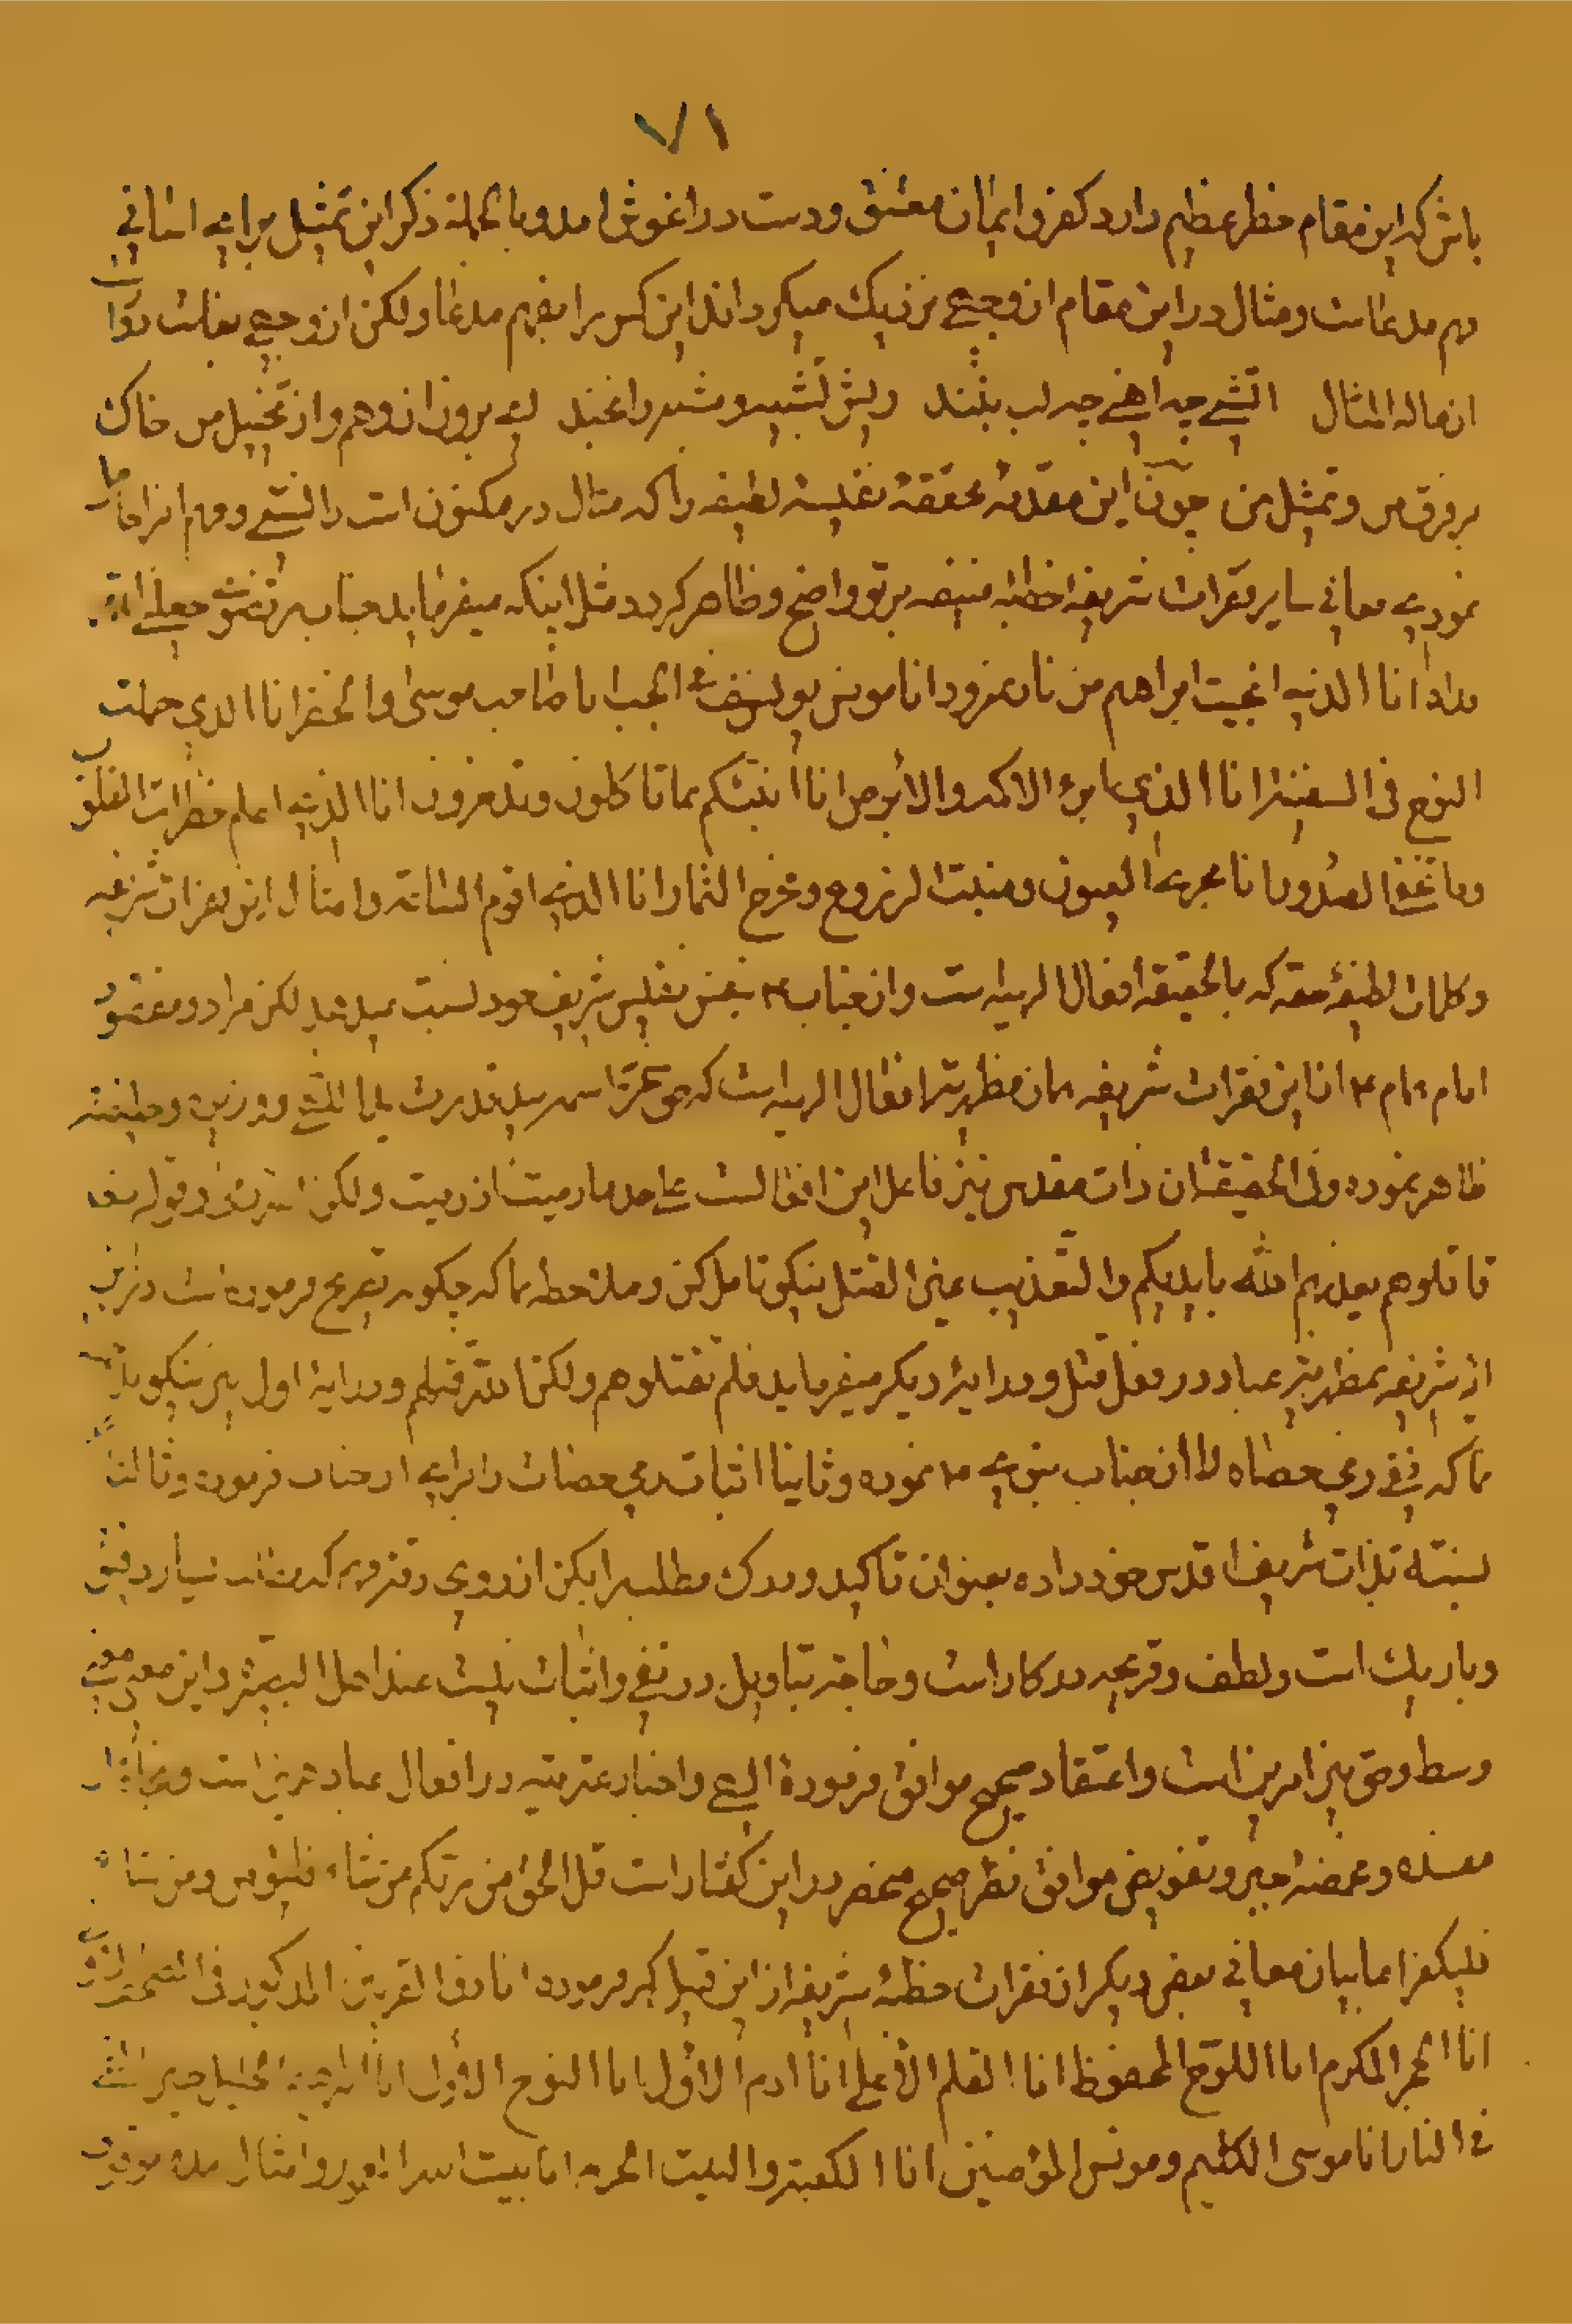 ۷۱
باش که این مقام خطر عظیم دارد کفر و ایمان معشق ودست در اغوش امد و بالجمله ذکر این تمثیل برای اسانی
فهم مدعاست و مثال در این مقام از وجهی نزدیک میکرداند این کس را بفهم مدعا ولکن از وجهی بغایت دور است
از ماله المثال اتشی چه اهنی چه لب ببند ریش تشبیه و مشبه را بخند ای برون از وهم و از تخییل من خاک
بر فرق من و تمثیل من چون این مقدمه محققه نفیسه لطیفه را که مثال در مکنون است دانستی و فهم انرا
نمودی معانی سایر فقرات شریفه خطبه منیفه بر تو واضح و ظاهر کردد مثل اینکه میفرماید جناب مرتضوی
فداه انا الذی انجیت ابراهیم من نار نمرود انا مونس یوسف فی الجب انا صاحب موسی والخضر انا الذی حملت
النوح فی السفینه انا الذی ابرء الاکمه والابرص انا انبئکم بما تاکلون وتدخرون انا الذی اعلم خطرات القلوب
وما تخفی الصدور انا مجری العیون ومنبت الزروع ومخرج الثمار انا الذی اقوم الساعه و امثال این فقرات شریفه
و کلمات لطیفه حقه که بالحقیقه افعال الهیه است و انجناب ۴ بنفس نفیس شریف خود نسبت میدهد لکن مراد و مقصود
امام همام ۴ از این فقرات شریفه همان مظهریت افعال الهیه است که حق عز اسمه ید قدرت
ظاهر نموده و فی الحقیقه ان ذات مقدس نیز فاعل این افعالست علی حد ما رمیت اذ رمیت ولکن الله رمی و قوله تعالی
قاتلوهم یعذبهم الله بایدیکم والتعذیب عین القتل نیکو تامل کن و ملاحظه نما که چکونه تصریح فرموده است در این
ایه شریفه بمظهریت عباد در فعل قتل و در ایه دیکر میفرماید فلم تقتلوهم ولکن الله قتلهم و در ایه اول نیز نیکو
نما که نفی رمی حصاه را از جناب نبی ۴ نموده و ثانیا اثبات رمی حصات را برای انجناب فرموده و ثالثا
نسبته بذات شریف اقدس خود داده بعنوان تاکید و درک مطلب را بکن از روی دقت و فهم که بسیار دقیق
و باریک است و لطف و قریحه در کار است و حاجت بتاویل در نفی و اثبات نیست عند اهل البصیره و این معنی
وسط و حق بین امرین است و اعتقاد صحیح موافق فرموده الهی و اخبار عترتیه در افعال عباد همین است
مفسده و مخمصه جبر و تفویض موافق نظر صحیح منحصر در این کفتار است قل الحق من ربکم من شاء فلیؤمن ومن شاء
فلیکفر اما بیان معانی بعض دیکر از فقرات خطبه شریفه از این قبیل که فرموده انا ذو القرنین المذکور فی الصحف
انا الحجر المکرم انا اللوح المحفوظ انا القلم الاعلی انا ادم الاول انا النوح الاول انا ابراهیم الخلیل حین القی
فی النار انا موسی الکلیم و مونس المؤمنین انا الکعبه والبیت الحرم انا بیت الله المعمور و امثال